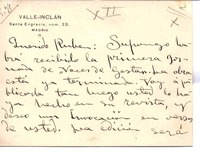 VALLE-INCLÁN
Santa Engracia, núm. 23.
MADRID
XII
2
Querido Rubén: Supongo ha
brá recibido la primera jor
nada de Voces de Gesta. La obra
está ya terminada. Voy á pu
blicarla tan luego usted lo ha
ya hecho en su revista, y
deseo una Invocación en verso
de usted. La edición será